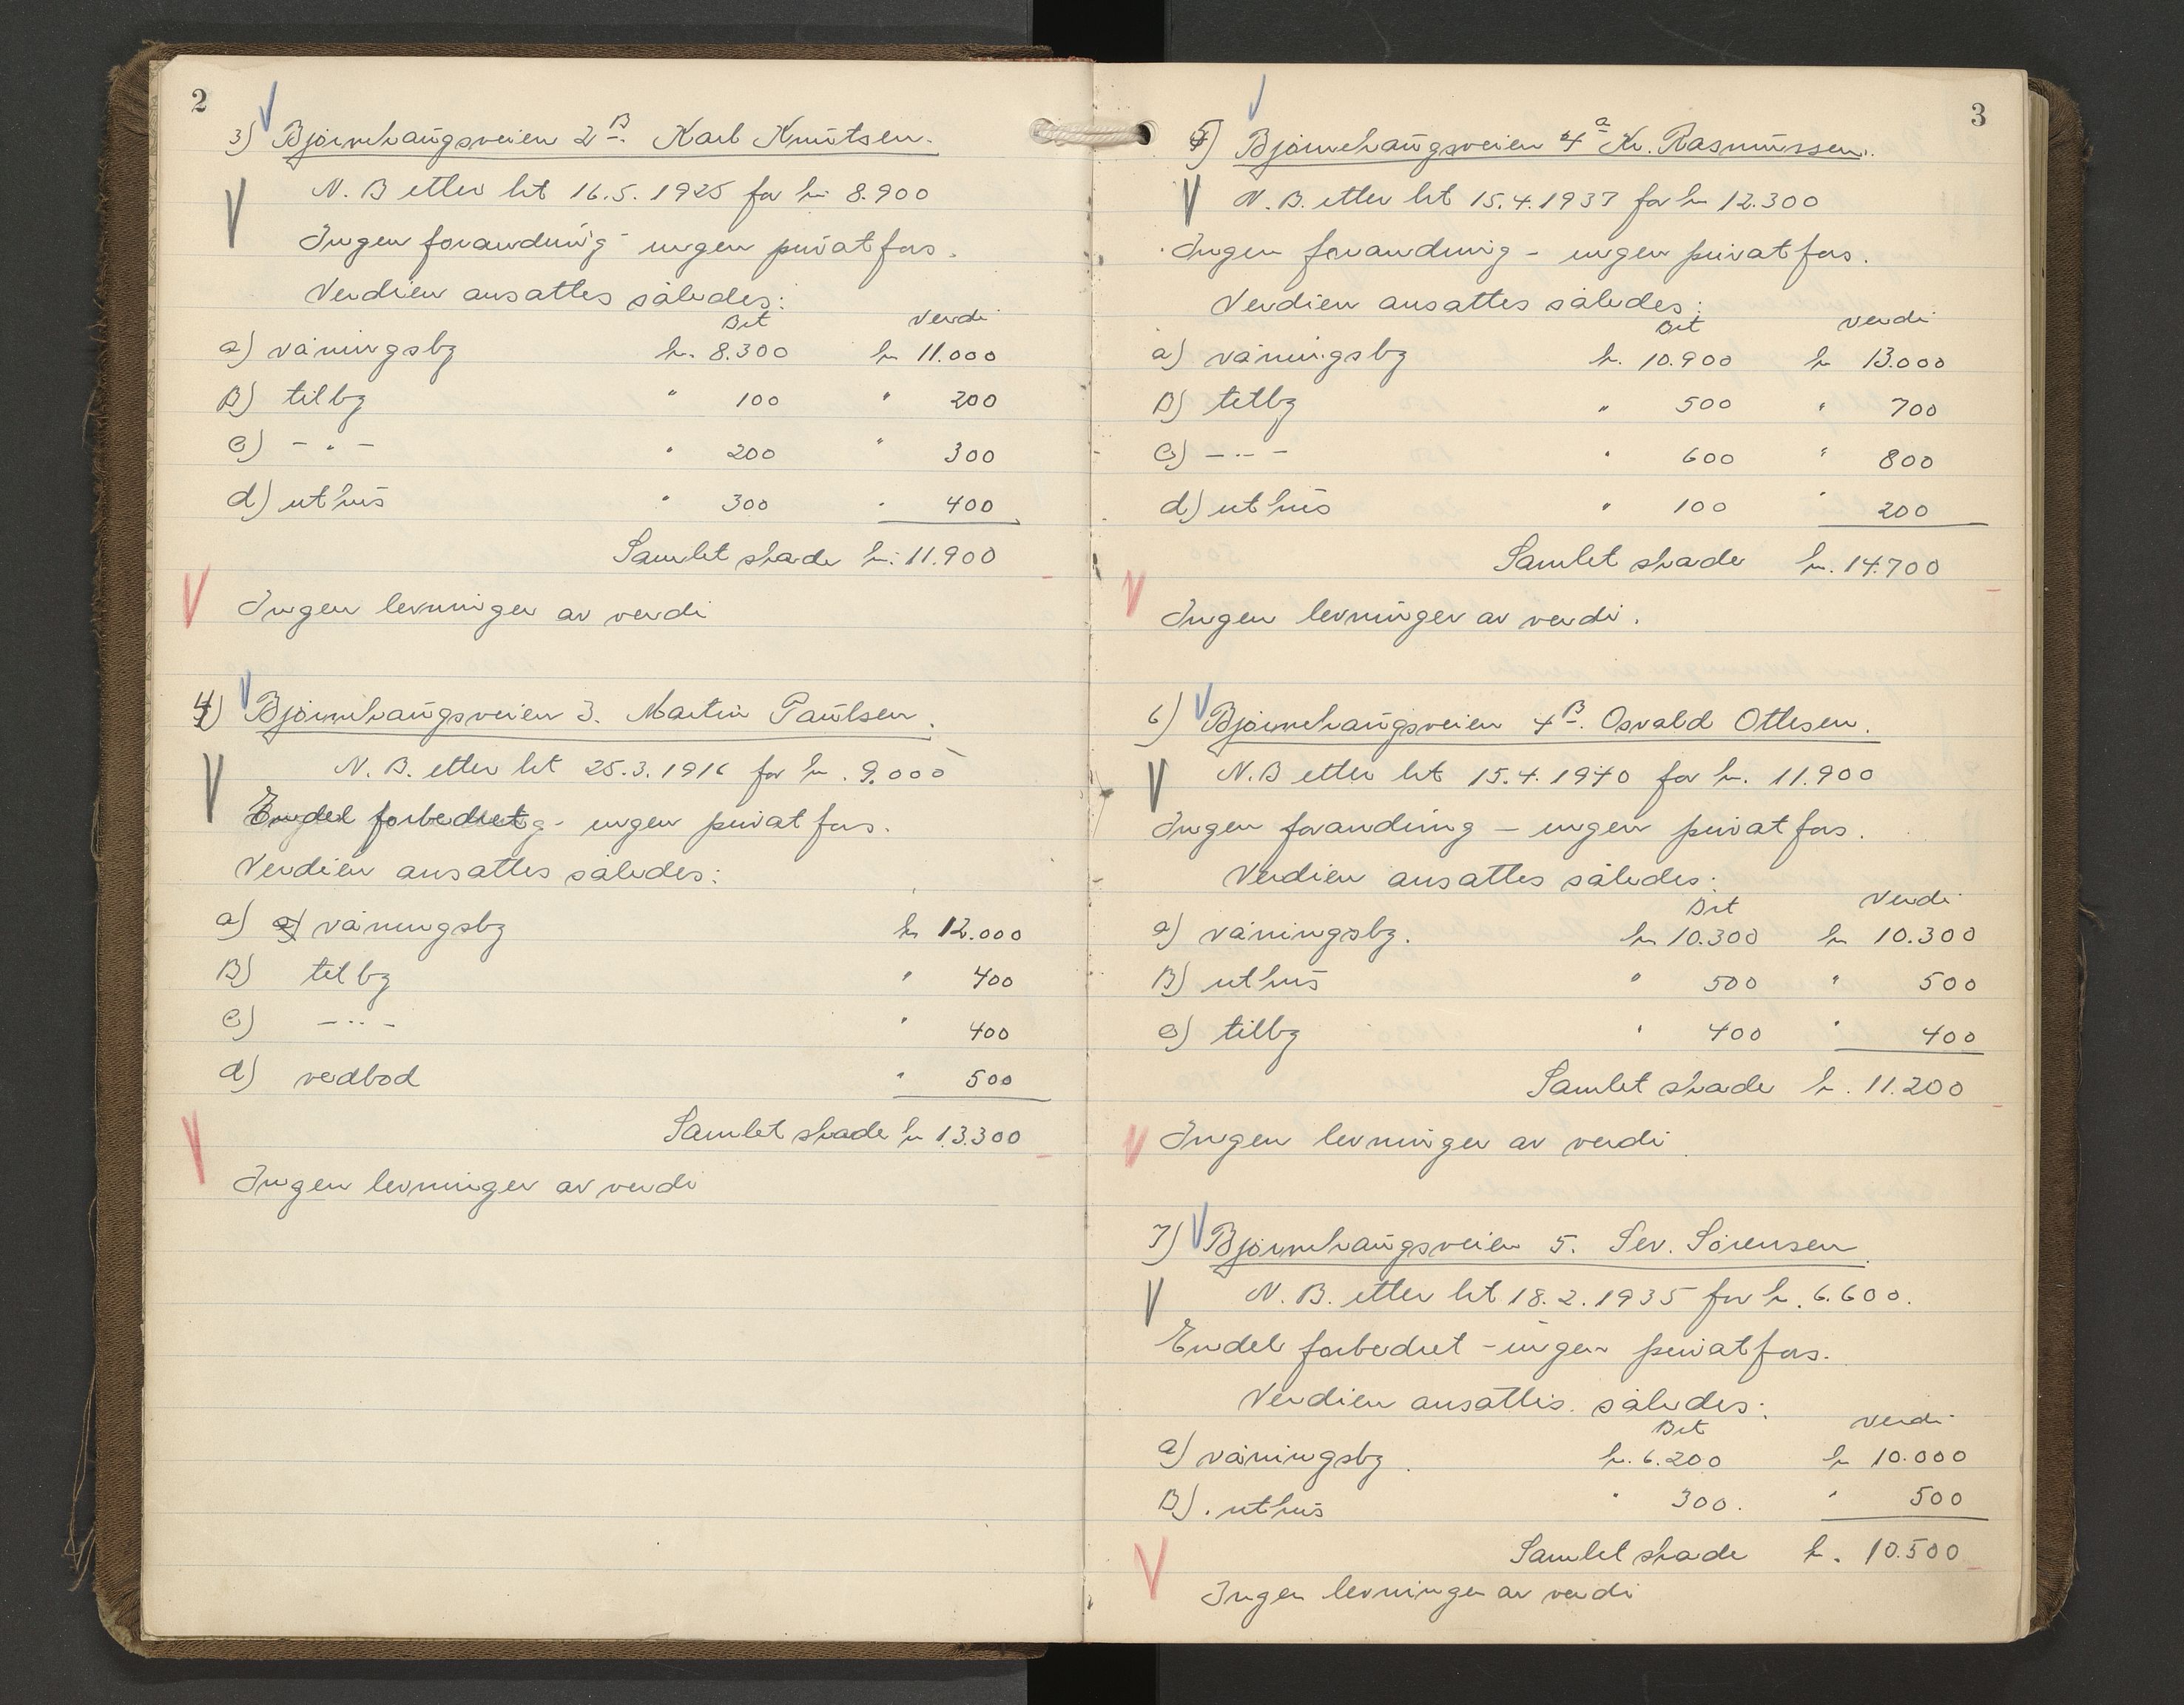 2
3) Bjørnehaugsveien 2B. Karl Knutsen.
N. B etter tkt 16.5.1925 for kr 8.900
Ingen forandring - ingen privat fors.
Verdien ansattes således:
Brt Verdi
a) våningsbg kr. 8.300 kr 11.000
B) tilbg " 100 " 200
c) - " - " 200 " 300
d) uthus " 300 " 400
Samlet skade kr. 11.900
Ingen levninger av verdi
4) Bjørnehaugsveien 3. Martin Paulsen.
N. B. etter tkt 25.3.1916 for kr. 9.000
Endel forbedret - ingen privat fors.
Verdien ansattes således:
a) a) våningsbg kr 12.000
B) tilbg " 400
c) - " - " 400
d) vedbod " 500
Samlet skade kr 13.300
Ingen levninger av verdi
3
5) Bjørnehaugsveien 4a Kr. Rasmussen.
N. B. etter tkt 15.4.1937 for kr 12.300
Ingen forandring - ingen privat fors.
Verdien ansattes således:
Brt Verdi
a) våningsbg kr. 10.900 kr 13.000
B) tilbg " 500 " 700
c) - " - " 600 " 800
d) uthus " 100 " 200
Samlet skade kr. 14.700
Ingen levninger av verdi.
6) Bjørnehaugsveien 4B. Osvald Ottesen.
N. B etter tkt 15.4.1940 for kr. 11.900
Ingen forandring - ingen privat fors.
Verdien ansattes således:
Brt Verdi
a) våningsbg. kr 10.300 kr 10.300
B) uthus " 500 " 500
c) tilbg " 400 " 400
Samlet skade kr. 11.200
Ingen levninger av verdi
7) Bjørnehaugsveien 5. Sev. Sørensen
N. B. etter tkt 18.2.1935 for kr. 6.600.
Endel forbedret - ingen privat fors.
Verdien ansattes således:
Brt Verdi
a) våningsbg. kr. 6.200 kr 10.000
B). uthus " 300. " 500
Samlet skade kr. 10.500
Ingen levninger av verdi